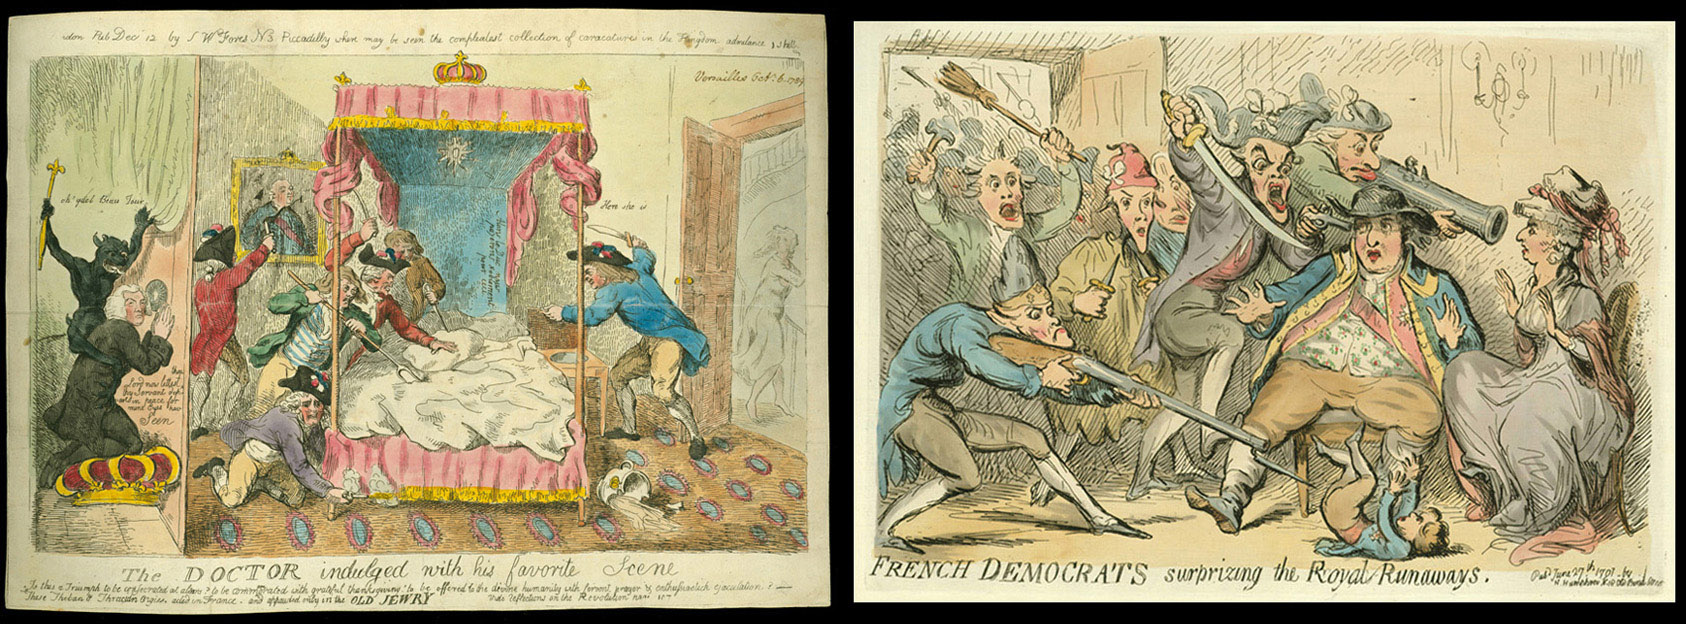 don Pub Dec 12 by S W Fores No 3 Piccadilly where may be seen the compleatest collection of caracatures in the Kingdom admitance 1 shell
Versailles Oct. 6. 1789
Here she is
Lord now lettest
thou
thy Servant dep
art in peace for
mine Eyes have
Seen
The DOCTOR indulged with his favorite Scene
Is this a Triumph to be consecrated at altars? to be commemorated with grateful thanksgiving? to be offered to the divine humanity with fervent prayer & enthusiastick ejaculation?
These Theban & Thracian Orgies, acted in France, and applauded only in the OLD JEWRY Vide Reflections on the Revolution
FRENCH DEMOCRATS surprizing the Royal Runaways.
Pub June 27th 1791 by